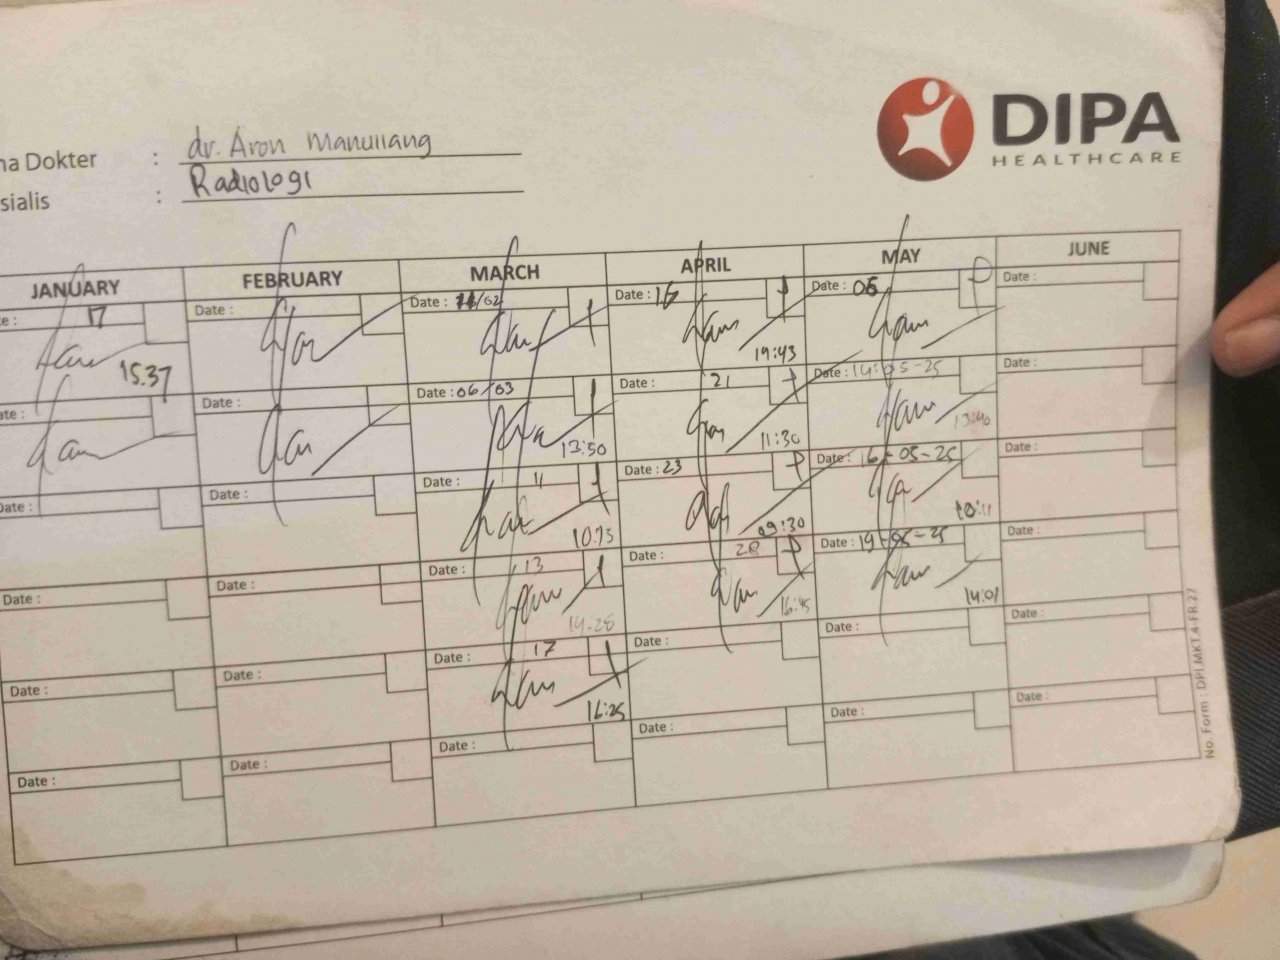 DIPA
HEALTHCARE
na Dokter : dr. Aron Manullang
sialis : Radiologi
JANUARY FEBRUARY MARCH APRIL MAY JUNE
e: 17 Date : Date : /02 Date : 16 Date : 06 Date :
15.37 19:43
ate : Date : Date : 06/03 Date : 21 Date : 14-05-25 Date :
13:50 11:30 13:40
Date : Date : Date : 11 Date : 23 Date : 16-05-25 Date :
09:30
Date : Date : Date : 13 Date : 28 Date : 19-05-25 Date :
14.28 16:45 14:01
Date : Date : Date : 17 Date : Date : Date :
16:25
Date : Date : Date : Date : Date : Date :
No. Form : DPI.MKT.4-FR.27